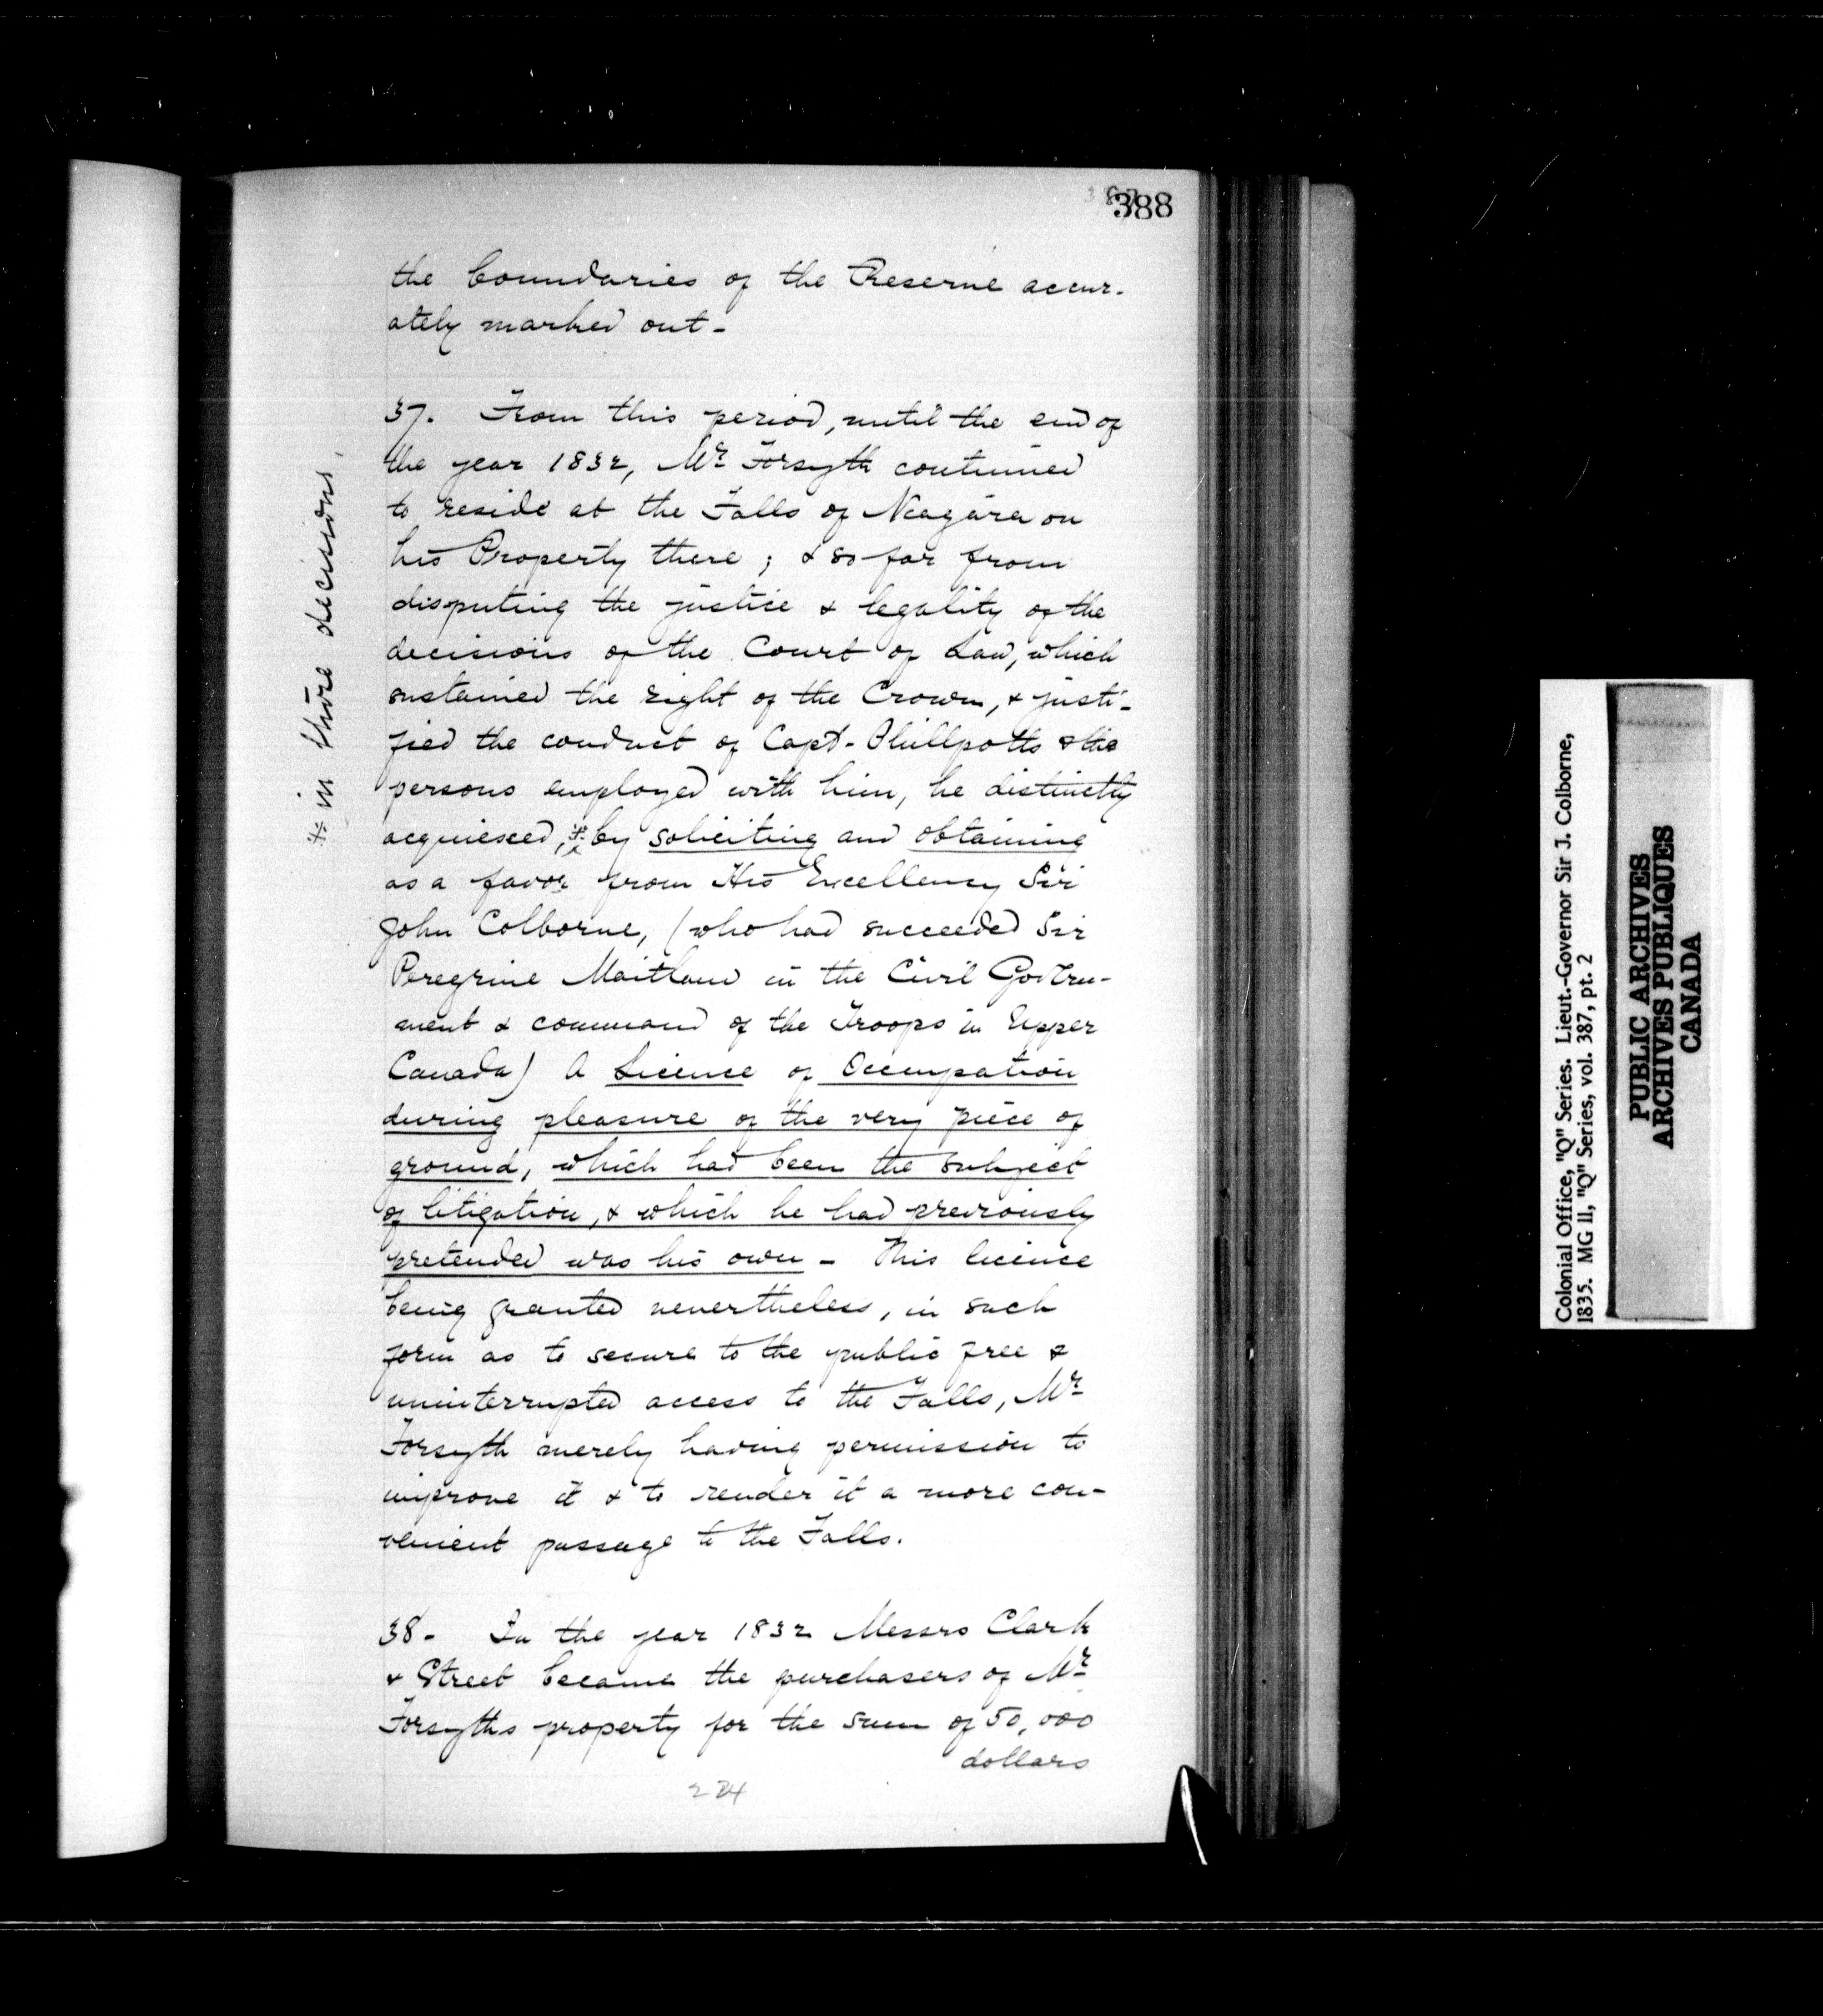 388
the boundaries of the Reserve accur-
ately marked out-
37. From this period, until the end of
the year 1832, Mr Forsyth continued
to reside at the Falls of Niagara on
his Property there; & so far from
disputing the justice & legality of the
decisions of the Court of Law, which
sustained the right of the Crown, & justi-
fied the conduct of Capt- Phillpotts & the
persons employed with him, he distinctly
acquiesced,* by soliciting and obtaining
as a favor from His Excellency Sir
John Colborne, (who had succeeded Sir
Peregrine Maitland in the Civil Govern-
ment & command of the Troops in Upper
Canada) A Licence of Occupation
during pleasure of the very piece of
ground, which had been the subject
of litigation, & which he had previously
pretended was his own - This licence
being granted nevertheless, in such
form as to secure to the public free &
uninterrupted access to the Falls, Mr
Forsyth merely having permission to
improve it & to render it a more con-
venient passage to the Falls.
38- In the year 1832 Messrs Clark
& Street became the purchasers of Mr
Forsyths property for the sum of 50,000
dollars
224
* in those decisions,
Colonial Office, "Q" Series. Lieut.-Governor Sir J. Colborne,
1835. MG 11, "Q" Series, vol. 387, pt. 2
PUBLIC ARCHIVES
ARCHIVES PUBLIQUES
CANADA